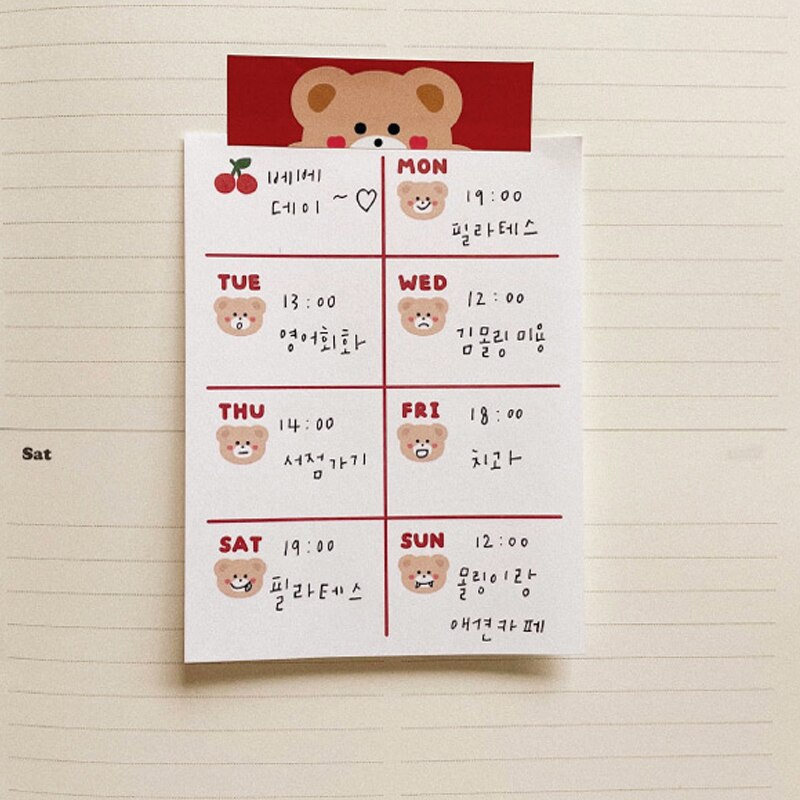 베베
데이~♡
MON
19:00
필라테스
TUE
13:00
영어회화
WED
12:00
김몰링 미용
THU
14:00
서점가기
FRI
18:00
치과
SAT
19:00
필라테스
SUN
12:00
몰링이랑
애견카페
Sat